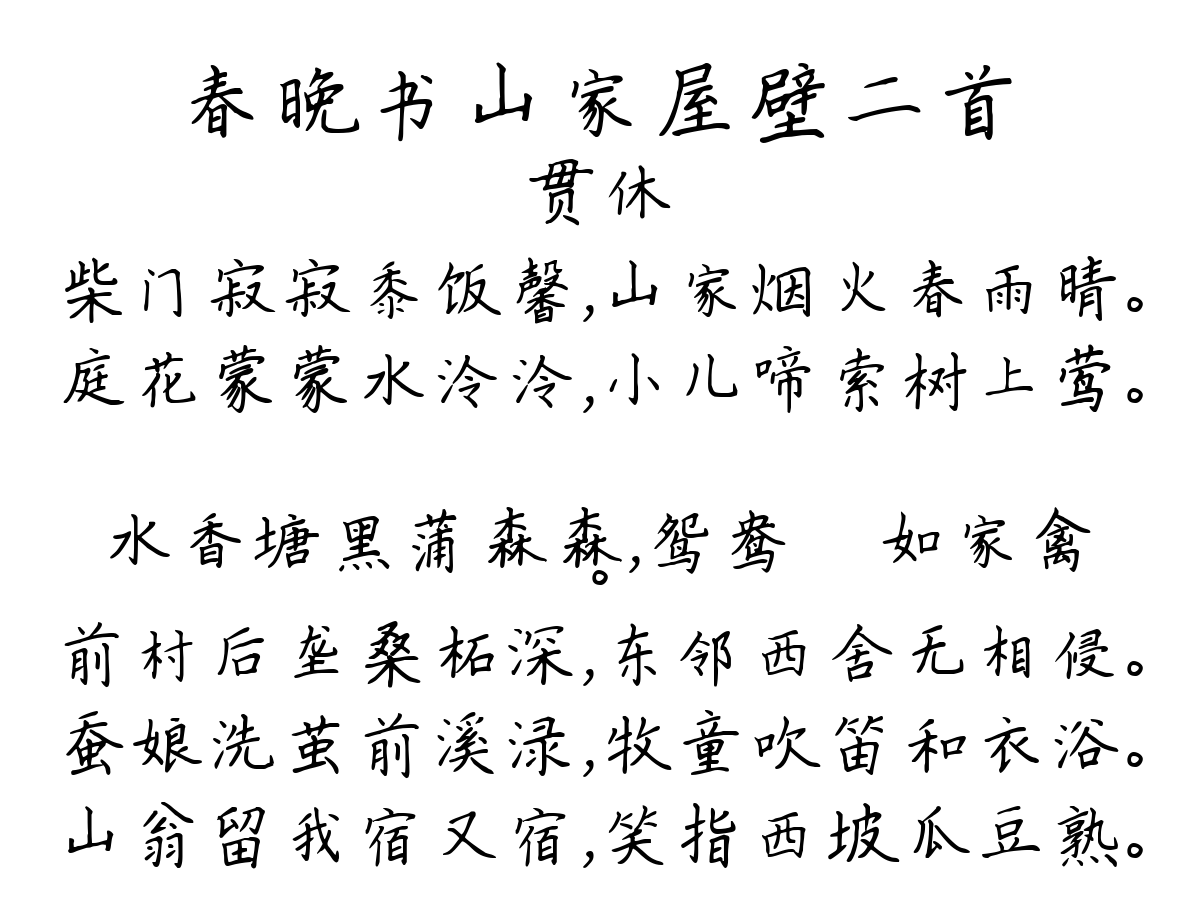 春晚书山家屋壁二首
贯休
柴门寂寂黍饭馨,山家烟火春雨晴。
庭花蒙蒙水泠泠,小儿啼索树上莺。
水香塘黑蒲森森,鸳鸯 如家禽。
前村后垄桑柘深,东邻西舍无相侵。
蚕娘洗茧前溪渌,牧童吹笛和衣浴。
山翁留我宿又宿,笑指西坡瓜豆熟。